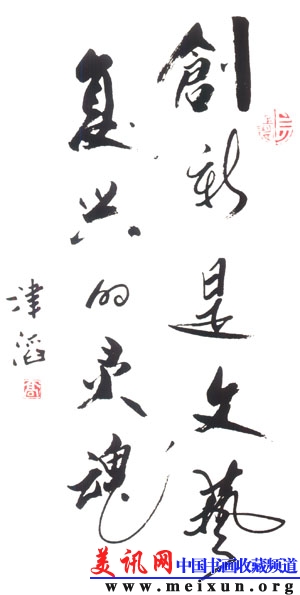 創新是文藝
复兴的灵魂
津滔
美讯网 中国书画收藏频道
www.meixun.org